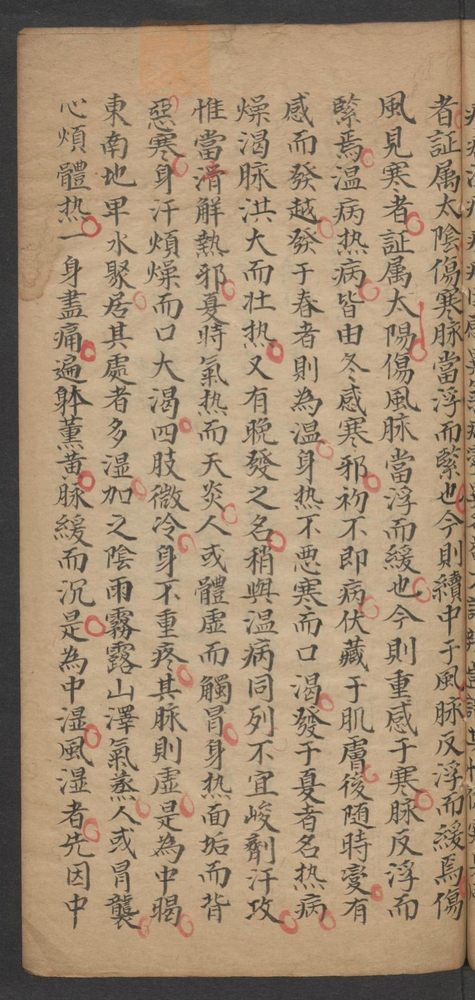 者証属太陰傷寒脉當浮而緊也今則續中于風脉反浮而緩焉傷
風見寒者証属太陽傷風脉當浮而緩也今則重感于寒脉反浮而
緊焉温病热病皆由冬感寒邪初不即病伏藏于肌膚後随時变有
感而發越發于春者則為温身热不悪寒而口渴發于夏者名热病
燥渴脉洪大而壮热又有晚發之名稍與温病同列不宜峻劑汗攻
惟當清解熱邪夏時氣热而天炎人或體虚而觸冒身热面垢而背
惡寒身汗煩燥而口大渴四肢微冷身不重疼其脉則虚是為中暍
東南地卑水聚居其處者多湿加之陰雨霧露山澤氣蒸人或冒襲
心煩體热一身盡痛遍躰薰黄脉緩而沉是為中湿風湿者先因中